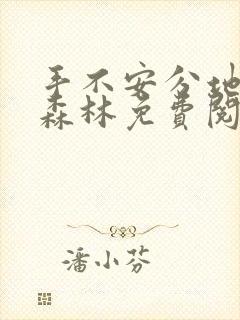 手不安分地
森林免费阅
潘小芬